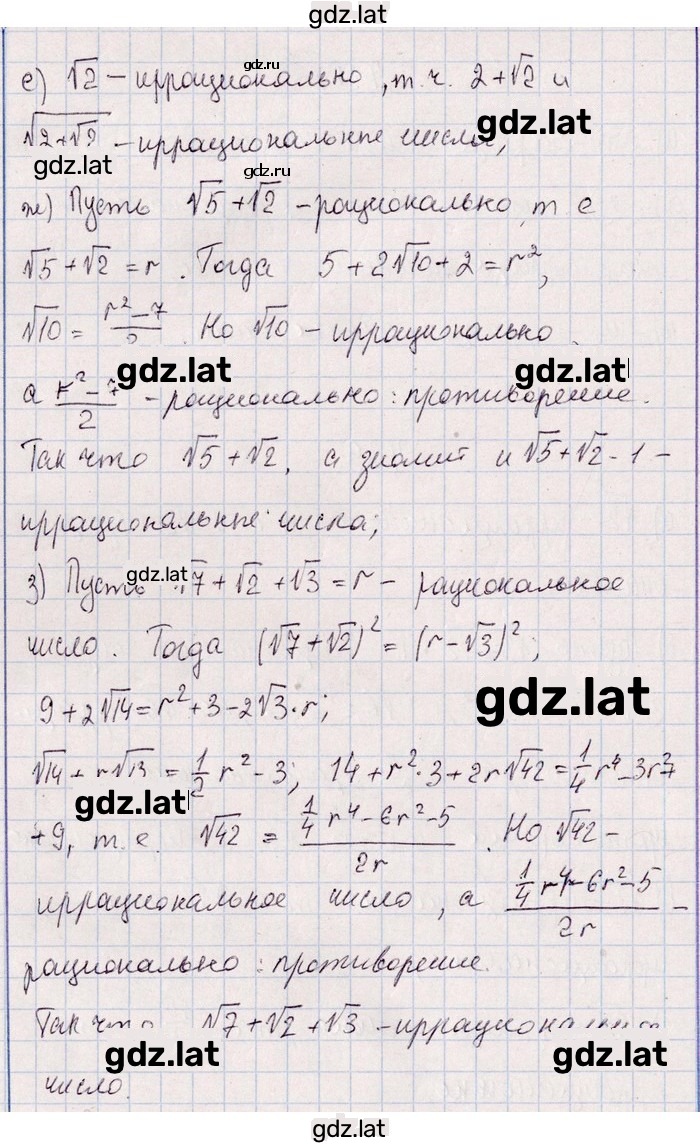 gdz.lat
gdz.ru
е) √2 - иррационально, т.ч. 2+√2 и
gdz.lat
√(2+√2) - иррациональные числа;
gdz.lat
gdz.ru
ж) Пусть √5+√2 - рационально, т е
√5+√2 = r. Тогда 5+2√10+2=r²,
√10 = (r²-7)/2. Но √10 - иррационально,
gdz.lat gdz.lat
а (r²-7)/2 - рационально: противорение.
Так что √5+√2, а значит и √5+√2-1 -
иррациональные числа;
gdz.lat gdz.lat
з) Пусть √7+√2+√3=r - рациональное
число. Тогда (√7+√2)²=(r-√3)²;
gdz.lat
9+2√14=r²+3-2√3·r;
√14+r√3 = 1/2 r²-3; 14+r²·3+2r√42=1/4 r⁴-3r²
gdz.lat
+9, т.е. √42 = (1/4 r⁴-6r²-5)/2r. Но √42 -
иррациональное число, а (1/4 r⁴-6r²-5)/2r -
рационально: противорение.
Так что √7+√2+√3 - иррациональное
gdz.lat gdz.lat
число.
gdz.lat